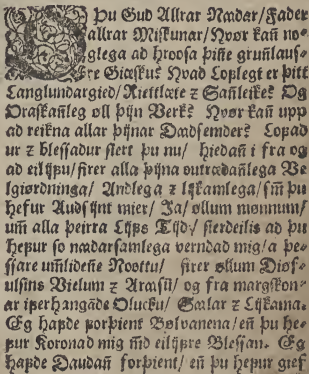 O Þu Gud Allrar Nadar/ Fader
allrar Miskunar/ Hvør kañ no-
glega ad hroosa þiñe gruñlaus-
re Giæsku? Hvad Loflegt er þitt
Langlundargied/ Riettlæte z Sañleike? Og
Oraskañleg øll þijn Verk? Hvør kañ upp
ad reikna allar þijnar Dasemder? Lofad
ur z blessadur siert þu nu/ hiedañ i fra og
ad eilijfu/ firer alla þijna outrædañlega Vel
giørdninga/ Andlega z lijkamlega/ sm̃ þu
hefur Audsijnt mier/ Ja/ øllum mønnum/
um̃ alla þeirra Lijfs Tijd/ sierdeilis ad þu
hefur so nadarsamlega verndad mig/ a þe-
ssare um̃lideñe Noottu/ firer øllum Diøf-
ulsins Vielum z Aræsn̄/ og fra margskon-
ar ifverhangãde Olucku/ Sælar z Lijkama.
Eg hafde forþient Bølvanena/ eñ þu he-
fur Koronad mig m̃d eilijfre Blessan. Eg
hafde Daudañ forþient/ eñ þu hefur gief